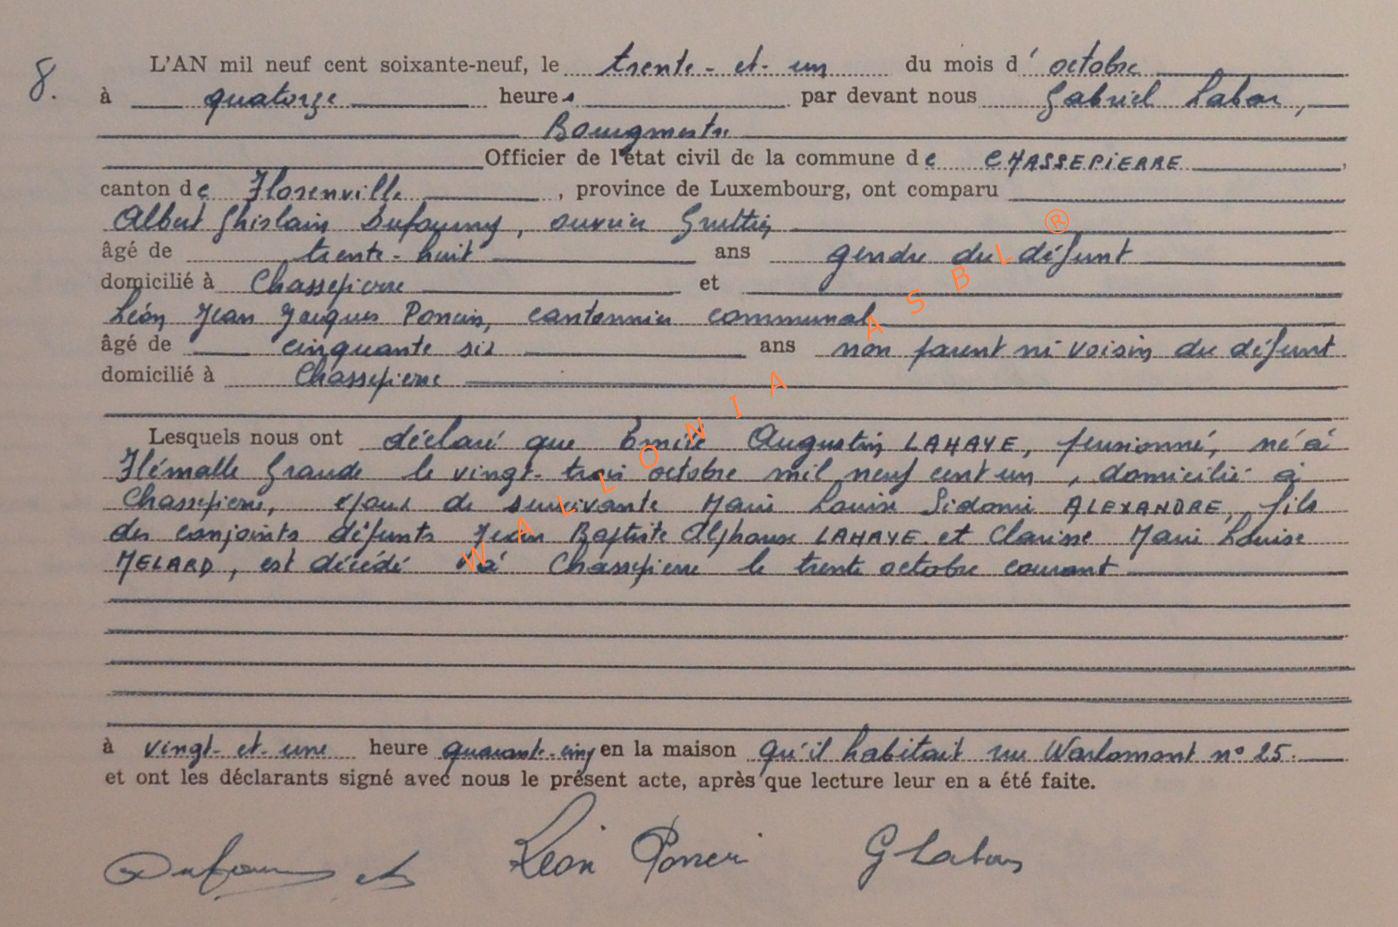 8.
L'AN mil neuf cent soixante-neuf, le trente-et-un du mois d'octobre
à quatorze heures par devant nous Gabriel Labar,
Bourgmestre
Officier de l'état civil de la commune de CHASSEPIERRE,
canton de Florenville, province de Luxembourg, ont comparu
Albert Ghislain Dufourny, ouvrier
âgé de trente-huit ans gendre du défunt
domicilié à Chassepierre et
Léon Jean Jacques Poncin, cantonnier communal
âgé de cinquante six ans non parent ni voisin du défunt
domicilié à Chassepierre
Lesquels nous ont déclaré que Emile Augustin LAHAYE, pensionné, né à
Flémalle Grande le vingt-trois octobre mil neuf cent un, domicilié à
Chassepierre, époux de survivante Marie Louise Sidonie ALEXANDRE, fils
des conjoints défunts Jean Baptiste Alphonse LAHAYE et Clarisse Marie Louise
MELARD, est décédé à Chassepierre le trente octobre courant
à vingt-et-une heure quarante-cinq en la maison qu'il habitait rue Warlomont n° 25.
et ont les déclarants signé avec nous le présent acte, après que lecture leur en a été faite.
Léon Poncin G Labar
WALLONIA ASBL ®